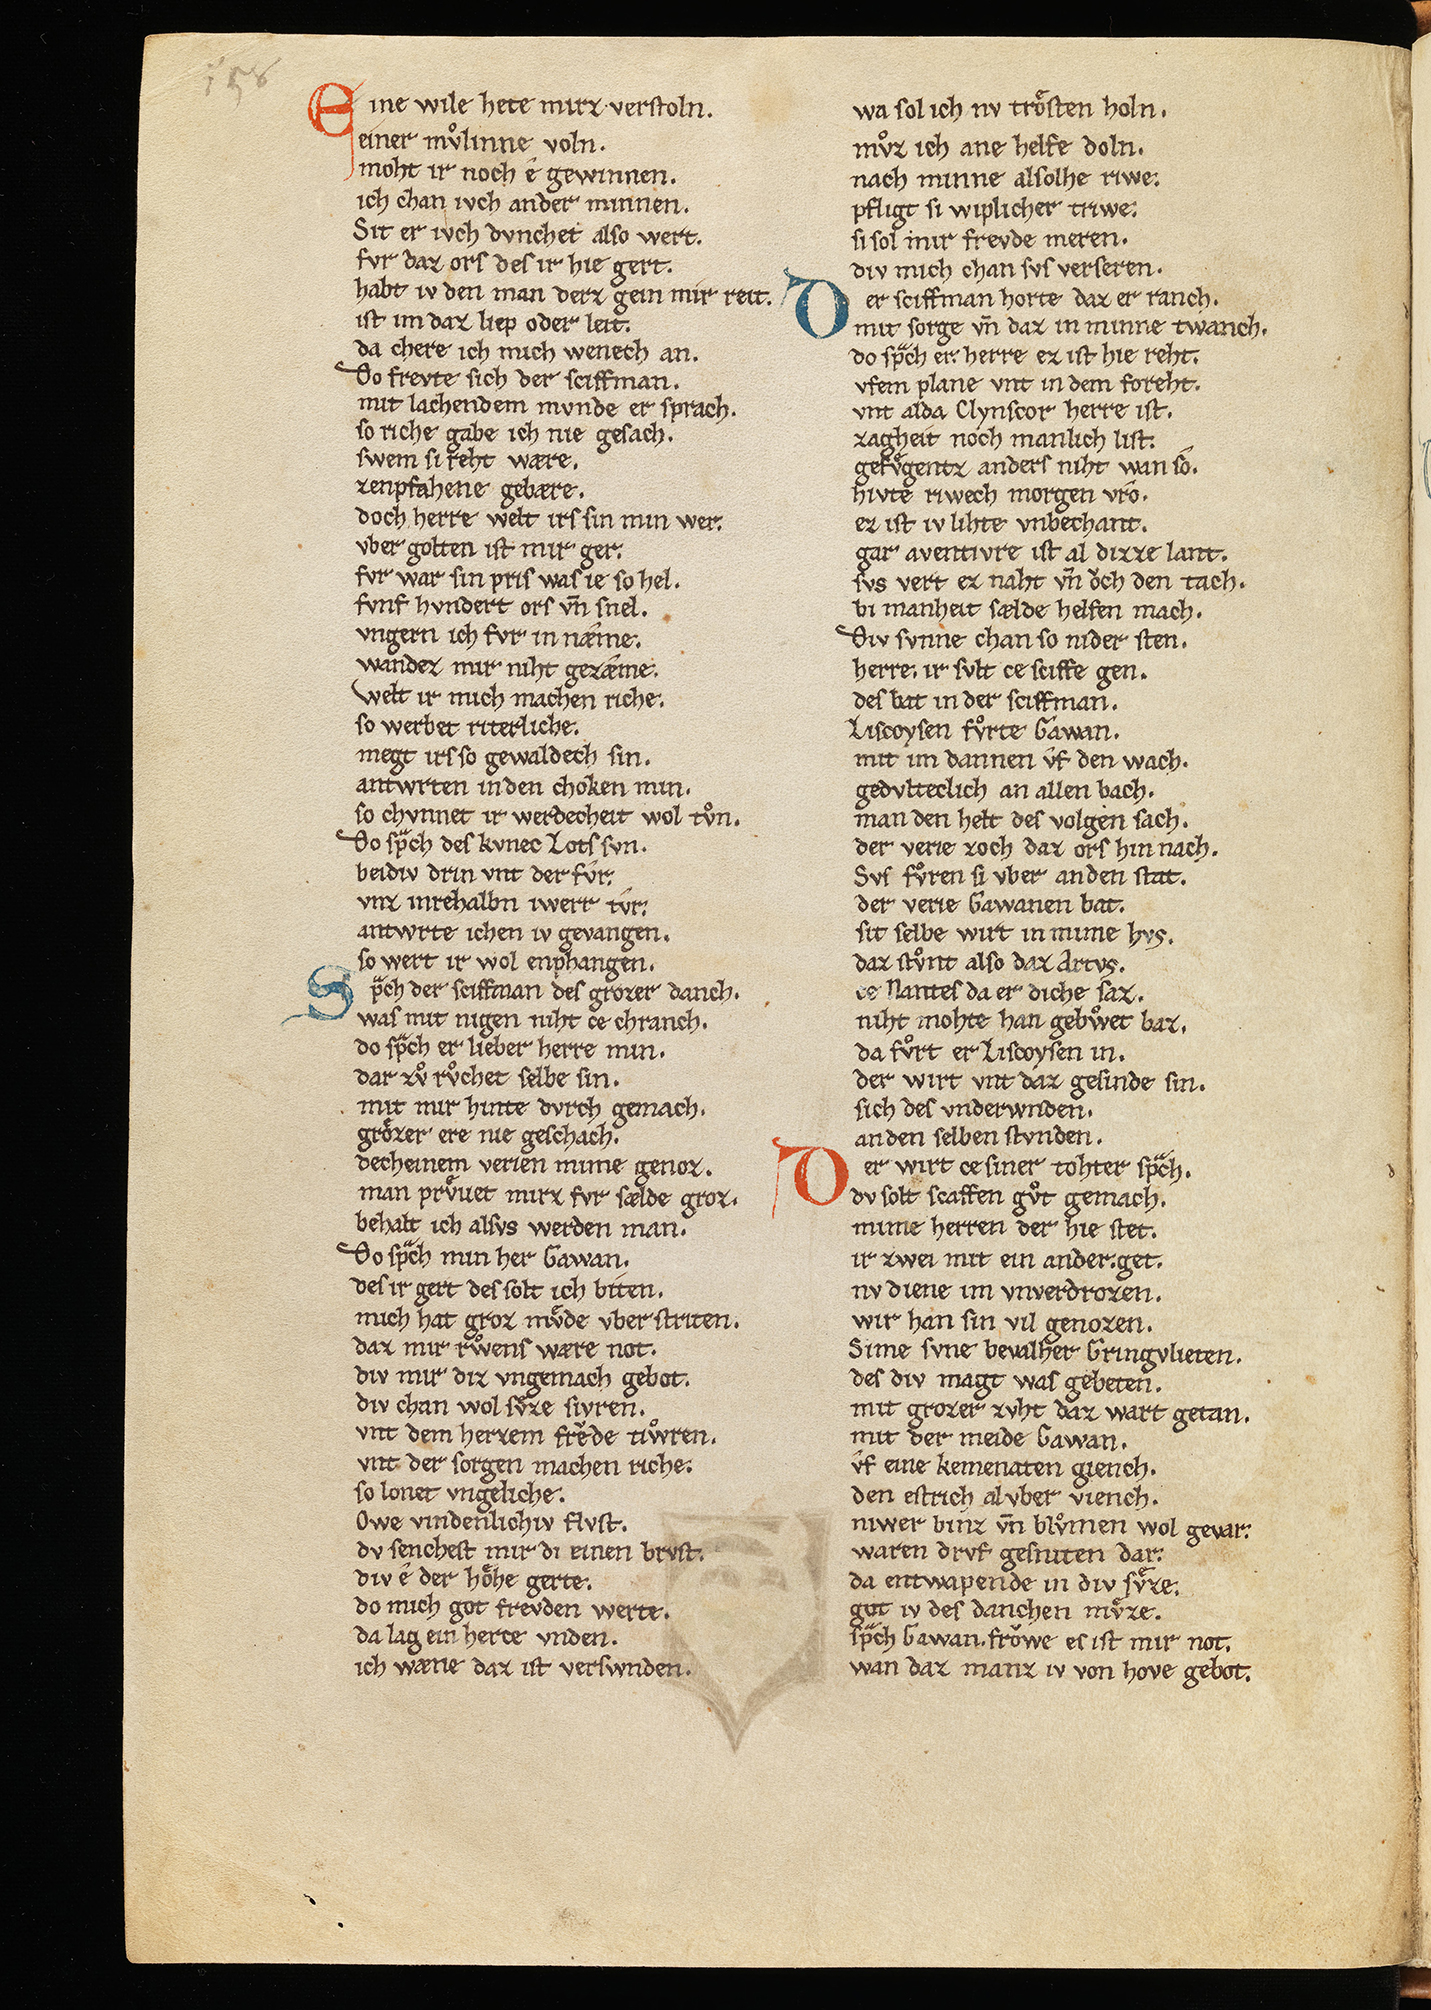 158
Eine wile hete mirz verstoln.
einer mv̊linne voln.
moht ir noch ê gewinnen.
ich chan ivch ander minnen.
Sit er ivch dvnchet also wert.
fvr daz ors des ir hie gert.
habt iv den man derz gein mir reit.
ist im daz liep oder leit.
da chere ich mich wenech an.
Do frevte sich der sciffman.
mit lachendem mvnde er sprach.
so riche gabe ich nie gesach.
swem si reht wære.
zenpfahene gebære.
doch herre welt irs sin min wer.
vber golten ist mir ger.
fvr war sin pris was ie so hel.
fvnf hvndert ors vn̄ snel.
vngern ich fvr in næme.
wandez mir niht gezæme.
Welt ir mich machen riche.
so werbet riterliche.
megt irs so gewaldech sin.
antwrten in den choken min.
so chvnnet ir werdecheit wol tv̊n.
Do sp̄ch des kvnec Lots svn.
beidiv drin vnt der fvr.
vnz inrehalbn iwerr tvr.
antwrte ichen iv gevangen.
so wert ir wol enphangen.
Sp̄ch der sciffman des grozer danch.
was mit nigen niht ce chranch.
do sp̄ch er lieber herre min.
dar zv̊ rv̊chet selbe sin.
mit mir hinte dvrch gemach.
grôzer ere nie geschach.
decheinem verien mime genoz.
man prv̂uet mirz fvr sælde groz.
behalt ich alsvs werden man.
Do sp̄ch min her Gawan.
des ir gert des solt ich biten.
mich hat groz mv̂de vber striten.
daz mir rv̊wens wære not.
div mir diz vngemach gebot.
div chan wol sv̂ze sivren.
vnt dem herzem frêde tiv̊ren.
vnt der sorgen machen riche.
so lonet vngeliche.
Owe vindenlichiv flvst.
dv senchest mir di einen brvst.
div ê der hôhe gerte.
do mich got frevden werte.
da lag ein herce vnden.
ich wæne daz ist verswnden.
wa sol ich nv trôsten holn.
mv̊z ich ane helfe doln.
nach minne alsolhe riwe.
pfligt si wiplicher triwe.
si sol mir frevde meren.
div mich chan svs verseren.
Der sciffman horte daz er ranch.
mit sorge vn̄ daz in minne twanch.
do sp̄ch er. herre ez ist hie reht.
vfem plane vnt in dem foreht.
vnt alda Clynscor herre ist.
zagheit noch manlich list.
gefv̂gentz anders niht wan so.
hivte riwech morgen vro.
ez ist iv lihte vnbechant.
gar aventivre ist al dizze lant.
svs vert ez naht vn̄ ôch den tach.
bi manheit sælde helfen mach.
Div svnne chan so nider sten.
herre. ir svlt ce sciffe gen.
des bat in der sciffman.
Liscoysen fv̊rte Gawan.
mit im dannen v̂f den wach.
gedvlteclich an allen bach.
man den helt des volgen sach.
der verie zoch daz ors hin nach.
Svs fv̊ren si vber an den stat.
der verie Gawanen bat.
sit selbe wirt in mime hvs.
daz stv̊nt also daz Artvs.
ce Nantes da er diche saz.
niht mohte han gebv̊wet baz.
da fv̊rt er Liscoysen in.
der wirt vnt daz gesinde sin.
sich des vnderwnden.
an den selben stvnden.
Der wirt ce siner tohter sp̄ch.
dv solt scaffen gv̊t gemach.
mime herren der hie stet.
ir zwei mit ein ander.get.
nv diene im vnverdrozen.
wir han sin vil genozen.
Sime svne bevalher Gringvlieten.
des div magt was gebeten.
mit grozer zvht daz wart getan.
mit der meide Gawan.
v̂f eine kemenaten giench.
den estrich al vber viench.
niwer binz vn̄ blv̊men wol gevar.
waren drvf gesniten dar.
da entwapende in div sv̂ze.
got iv des danchen mv̂ze.
sp̄ch Gawan. frôwe es ist mir not.
wan daz manz iv von hove gebot.